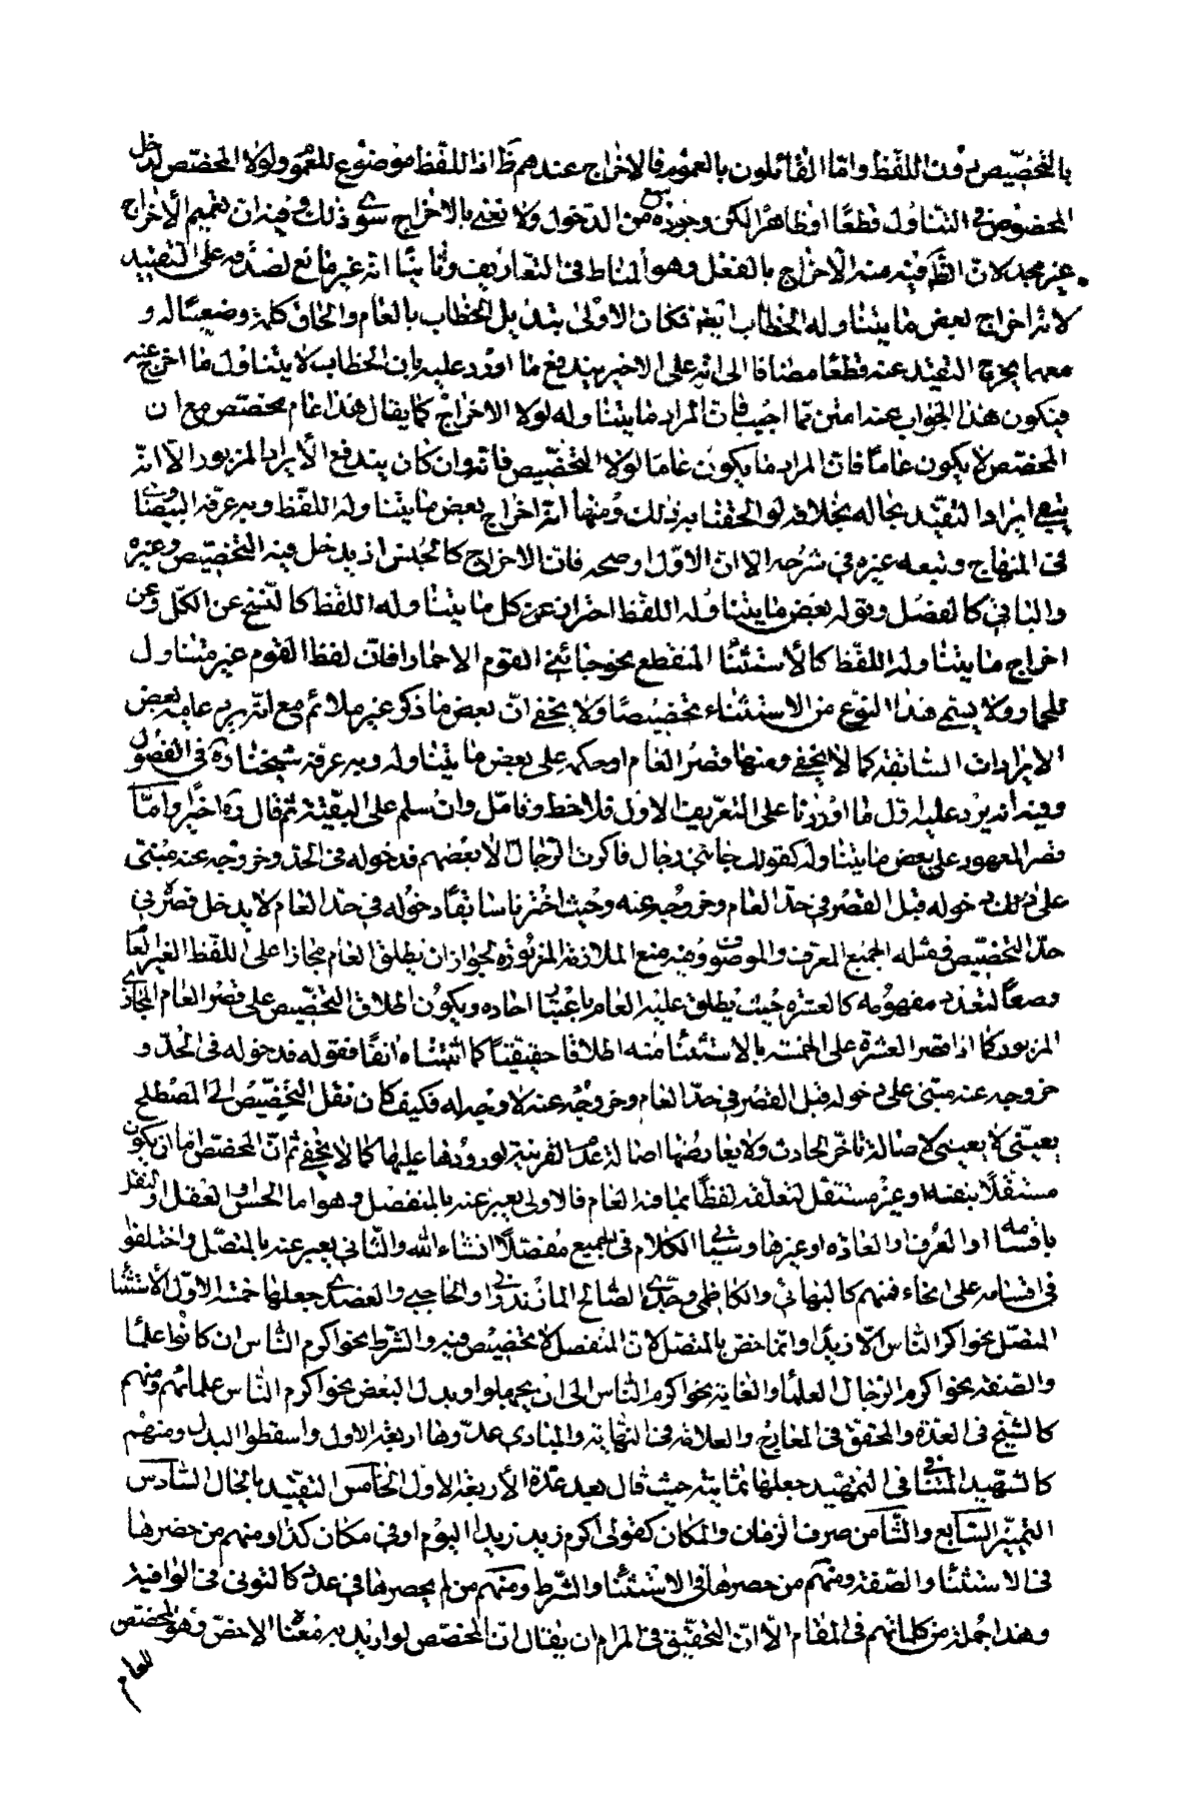 بالتخصيص دون اللفظ واما القائلون بالعموم فالاخراج عندهم ظ اذا اللفظ موضوع للعموم ولولا المخصص لدخل
المخصوص في التناول قطعًا او ظاهرًا لكن وجوده منع من الدخول ولا نعني بالاخراج سوى ذلك وفيه ان تعميم الأخراج
غير مجد لان الظ فيه منه الاخراج بالفعل وهو المناط في التعاريف وثانيًا انه غير مانع لصدقه على التقييد
لانه اخراج بعض ما يتناوله الخطاب ايضا فكان الاولى تبديل الخطاب بالعام والحاق كلمة وضعيًا له و
معهما يخرج التقييد عنه قطعًا مضافا الى انه على الاخير يندفع ما اورد عليه بان الخطاب لا يتناول ما اخرج عنه
فيكون هذا الجواب عنه امتن مما اجيب فان المراد ما يتناوله لولا الاخراج كما يقال هذا عام مخصص مع ان
المخصص لا يكون عامًا فان المراد ما يكون عاما لولا التخصيص فانه وان كان يندفع الأيراد المزبور الا انه
يبقى ايراد التقييد بحاله بخلافه لو الحقنا به ذلك ومنها انه اخراج بعض ما يتناوله اللفظ وبه عرفه البيضاوي
في المنهاج وتبعه غيره في شرحه الا ان الاول اوضح فان الاخراج كالجنس اذ يدخل فيه التخصيص وغيره
والباقي كالفصل وبقوله بعض ما يتناوله اللفظ احتراز عن كل ما يتناوله اللفظ كالنسخ عن الكل وعن
اخراج ما يتناوله اللفظ كالأستثنا المنقطع نحو جائني القوم الا حمارا فان لفظ القوم غير متناول
للحمار ولا يسمى هذا النوع من الاستثناء تخصيصًا ولا يخفى ان بعض ما ذكر غير ملائم مع انه يرد عليه بعض
الايرادات السابقة كما لا يخفى ومنها قصر العام او حكمه على بعض ما يتناوله وبه عرفه شيخنا ره في الفصول
وفيه انه يرد عليه اول ما اوردنا على التعريف الاول فلاحظ وتامل وان سلم على البقية ثم قال ره اخيرا واما
قصر المعهود على بعض ما يتناوله كقولك جائني رجال فاكرمت الرجال الا بعضهم فدخوله في الحد وخروجه عنه مبني
على دخوله قبل القصر في حد العام وخروجه عنه وحيث اخترنا سابقًا دخوله في حد العام لا يدخل قصره في
حد التخصيص فمثله الجمع المعرف والموصوف وفيه منع الملازمة المزبورة لجواز ان يطلق العام مجازا على اللفظ الغير العام
وضعًا لتعدد مفهومه كالعشرة حيث يطلق عليه العام باعتبار احاده ويكون اطلاق التخصيص على قصر العام المجازي
المزبور كما اذا قصر العشرة على الخمسة بالاستثنا منه اطلاقا حقيقيًا كما اثبتناه انفًا فقوله فدخوله في الحد و
خروجه عنه مبني على دخوله قبل القصر في حد العام وخروجه عنه لا وجه له فكيف كان فنقل التخصيص الى المصطلح
تعييني لا تعيني لاصالة تاخر الحادث ولا يعارضها اصالة عدم القرينة لورودها عليها كما لا يخفى ثم ان المخصص اما ان يكون
مستقلًا بنفسه او غير مستقل لتعلقه لفظًا بما فيه العام فالاولى يعبر عنه بالمنفصل وهو اما الحس او العقل او النقل
باقسامه او العرف او العادة او غيرها وسيأتي الكلام في الجميع مفصلًا انشاء الله والثاني يعبر عنه بالمتصل واختلفوا
في اقسامه على انحاء فمنهم كالبهائي والكاظمي وجدي الصالح المازندراني والحاجبي والعضدي جعلها خمسة الاول الأستثنا
المتصل نحو اكرم الناس الا زيدًا وانما خص بالمتصل لان المنفصل لا تخصيص فيه والشرط نحو اكرم الناس ان كانوا علمًا
والصفة نحو اكرم الرجال العلمآ والغاية نحو اكرم الناس الى ان يجهلوا وبدل البعض نحو اكرم الناس علمائهم ومنهم
كالشيخ في العدة والمحقق في المعارج والعلامة في النهاية والمبادي عدوها اربعة الاول واسقطوا البدل ومنهم
كالشهيد الثاني في التمهيد جعلها ثمانية حيث قال بعد عدة الأربعة الاول الخامس التقييد بالحال السادس
التميز السابع والثامن صرف الزمان والمكان كقولي اكرم زيدا اليوم او في مكان كذا ومنهم من حصرها
في الاستثنا والصفة ومنهم من حصرها في الاستثنا والشرط ومنهم من لم يحصرها في عدد كالتوني في الوافية
وهذا جملة من كلماتهم في المقام الا ان التحقيق في المرام ان يقال ان المخصص لو اريد به معناه الاخص وهو المخصص
العام